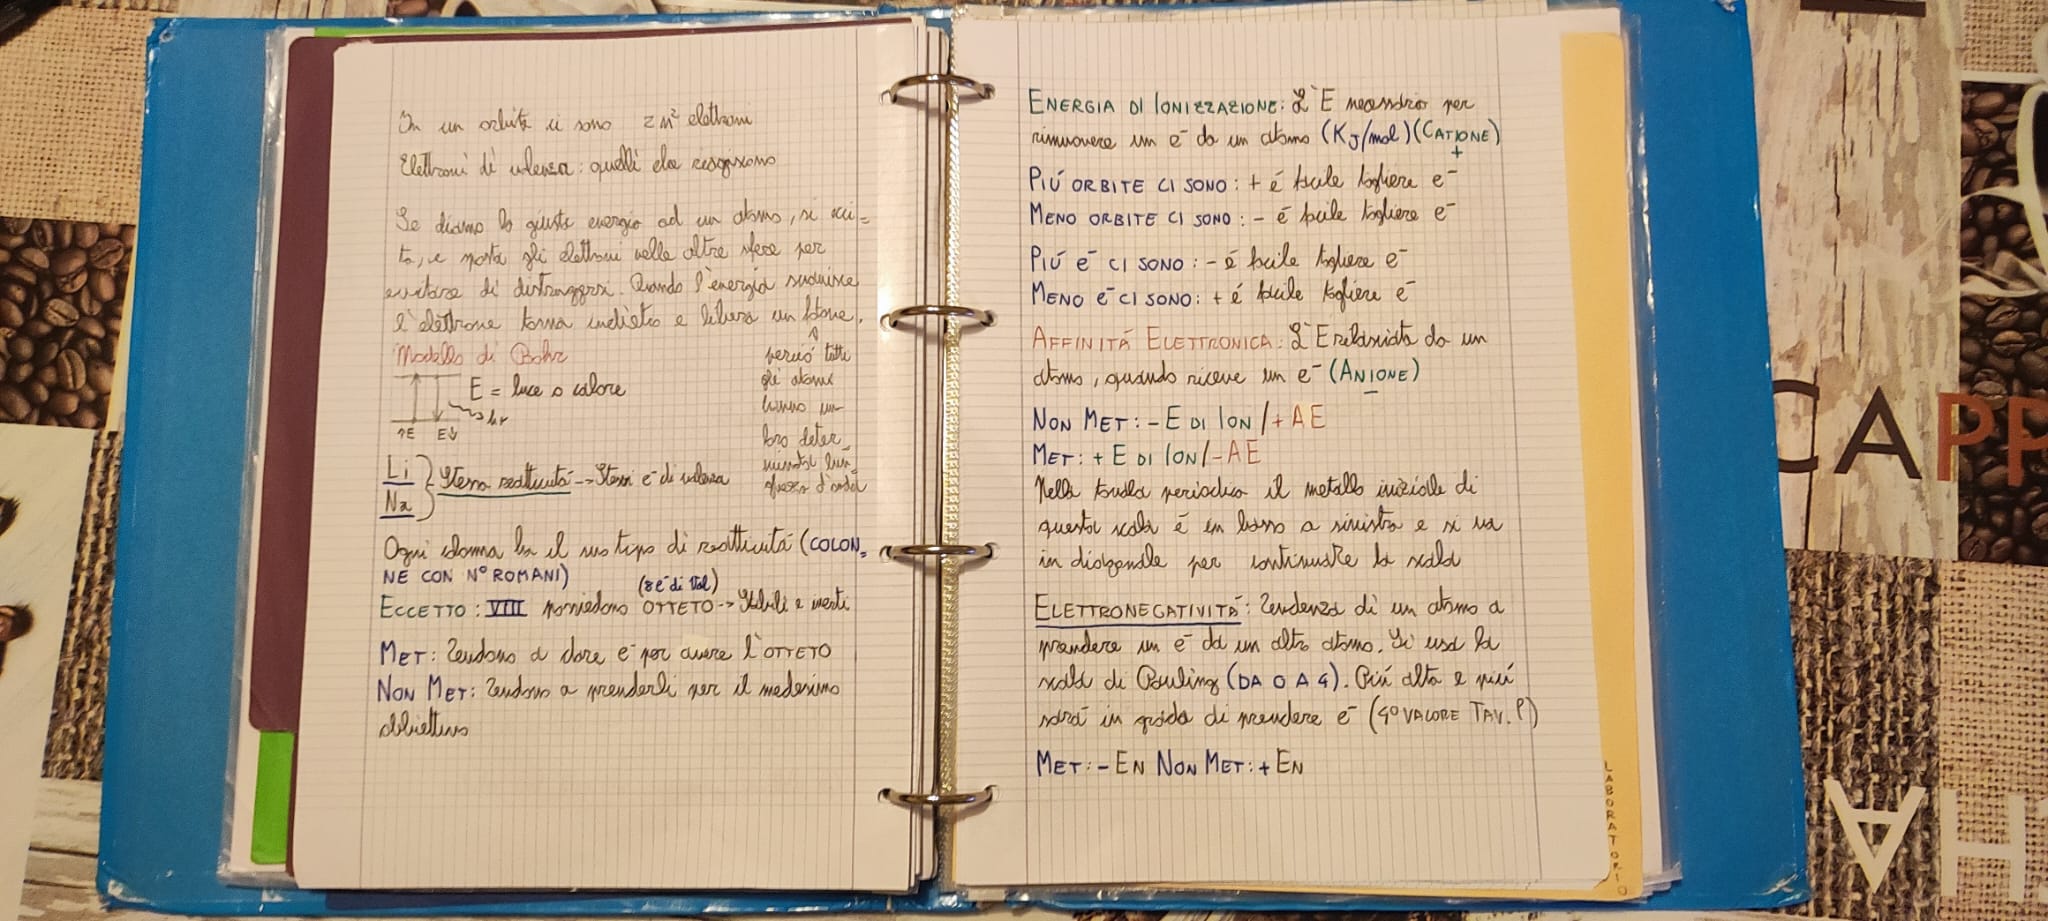 In un orbita ci sono 2n² elettroni
Elettroni di valenza: quelli che reagiscono
Se diamo la giusta energia ad un atomo, si ecci=
ta, e sposta gli elettroni nelle altre sfere per
evitare di distruggersi. Quando l'energia svanisce
l'elettrone torna indietro e libera un fotone.
perció tutti
gli atomi
hanno una
loro deter_
minata lun_
ghezza d'onda
Modello di Bohr
E = luce o calore
hν
↑E E↓
Li
Na
Stessa reattivitá → Stessi e⁻ di valenza
Ogni colonna ha il suo tipo di reattivitá (COLON=
NE CON N° ROMANI)
(8 e⁻ di Val)
ECCETTO: VIII possiedono OTTETO → Stabili e inerti
MET: Tendono a dare e⁻ per avere l'OTTETO
NON MET: Tendono a prenderli per il medesimo
obbiettivo
ENERGIA DI IONIZZAZIONE: L'E necessaria per
rimuovere un e⁻ da un atomo (KJ/mol) (CATIONE)
+
PIÚ ORBITE CI SONO: + é facile togliere e⁻
MENO ORBITE CI SONO: - é facile togliere e⁻
PIÚ e⁻ CI SONO: - é facile togliere e⁻
MENO e⁻ CI SONO: + é facile togliere e⁻
AFFINITÁ ELETTRONICA: L'E rilasciata da un
atomo, quando riceve un e⁻ (ANIONE)
-
NON MET: - E DI ION / + AE
MET: + E DI ION / - AE
Nella tavola periodica il metallo iniziale di
questa scala é in basso a sinistra e si va
in diagonale per continuare la scala
ELETTRONEGATIVITÁ: Tendenza di un atomo a
prendere un e⁻ da un altro atomo. Si usa la
scala di Pauling (DA 0 A 4). Piú alta e piú
sará in grado di prendere e⁻ (4° VALORE TAV. P)
MET: - EN NON MET: + EN
LABORATORIO
CAPP
CHA